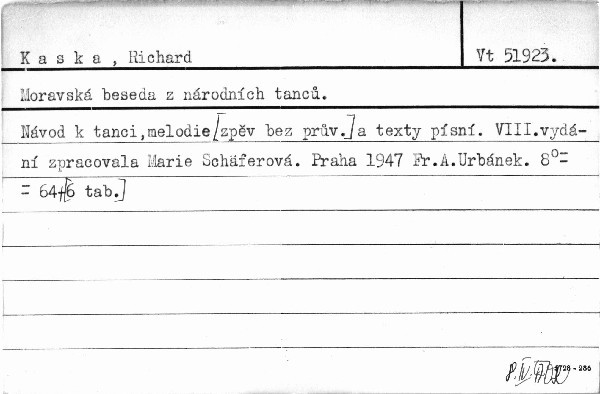 K a s k a , Richard
Vt 51923.
Moravská beseda z národních tanců.
Návod k tanci,melodie[zpěv bez prův.]a texty písní. VIII.vydá-
ní zpracovala Marie Schäferová. Praha 1947 Fr.A.Urbánek. 8°=
= 64+[6 tab.]
8.IV.